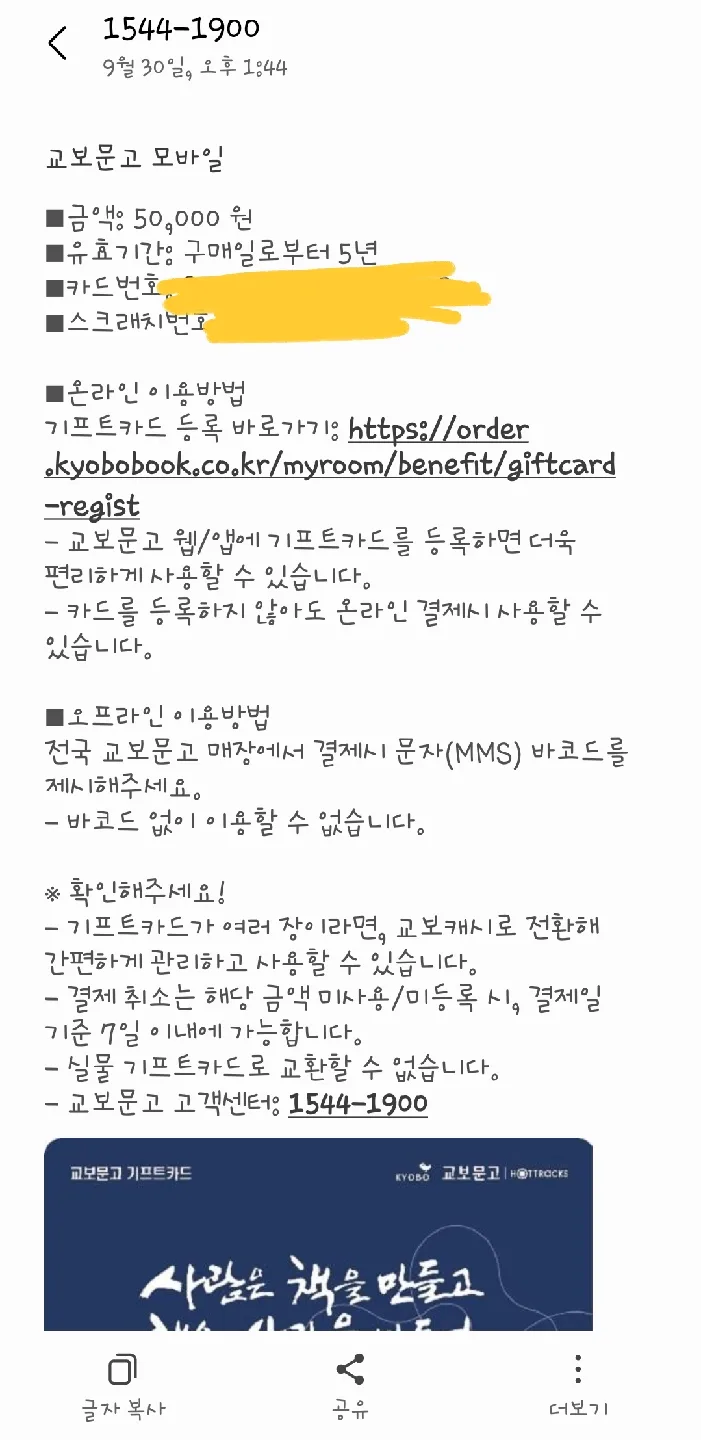 1544-1900
9월 30일, 오후 1:44
교보문고 모바일
■금액: 50,000 원
■유효기간: 구매일로부터 5년
■카드번호:
■스크래치번호
■온라인 이용방법
기프트카드 등록 바로가기: https://order
.kyobobook.co.kr/myroom/benefit/giftcard
-regist
- 교보문고 웹/앱에 기프트카드를 등록하면 더욱
편리하게 사용할 수 있습니다.
- 카드를 등록하지 않아도 온라인 결제시 사용할 수
있습니다.
■오프라인 이용방법
전국 교보문고 매장에서 결제시 문자(MMS) 바코드를
제시해주세요.
- 바코드 없이 이용할 수 없습니다.
※ 확인해주세요!
- 기프트카드가 여러 장이라면, 교보캐시로 전환해
간편하게 관리하고 사용할 수 있습니다.
- 결제 취소는 해당 금액 미사용/미등록 시, 결제일
기준 7일 이내에 가능합니다.
- 실물 기프트카드로 교환할 수 없습니다.
- 교보문고 고객센터: 1544-1900
교보문고 기프트카드
KYOBO 교보문고 | HOTTRACKS
사람은 책을 만들고
글자 복사
공유
더보기